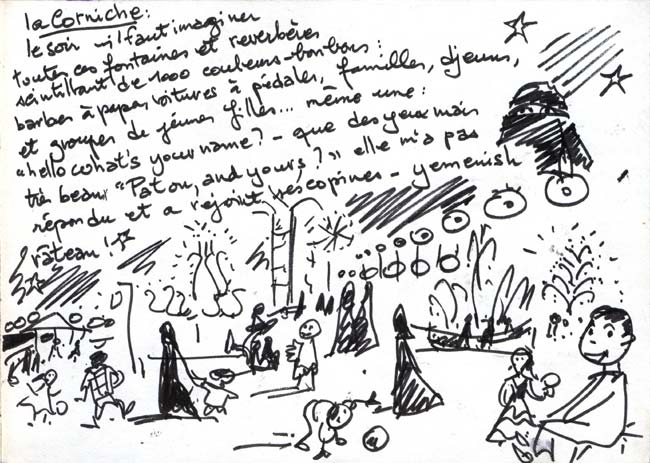 la Corniche:
le soir il faut imaginer
toutes ces fontaines et reverbères
scintillant de 1000 couleurs-bonbons:
barbes à papas, voitures à pédales, familles, djeuns,
et groupes de jeunes filles... même une:
"hello what's your name? - que des yeux mais
très beaux "Patou, and yours?" elle m'a pas
répondu et a rejoint ses copines - yemenish
râteau!